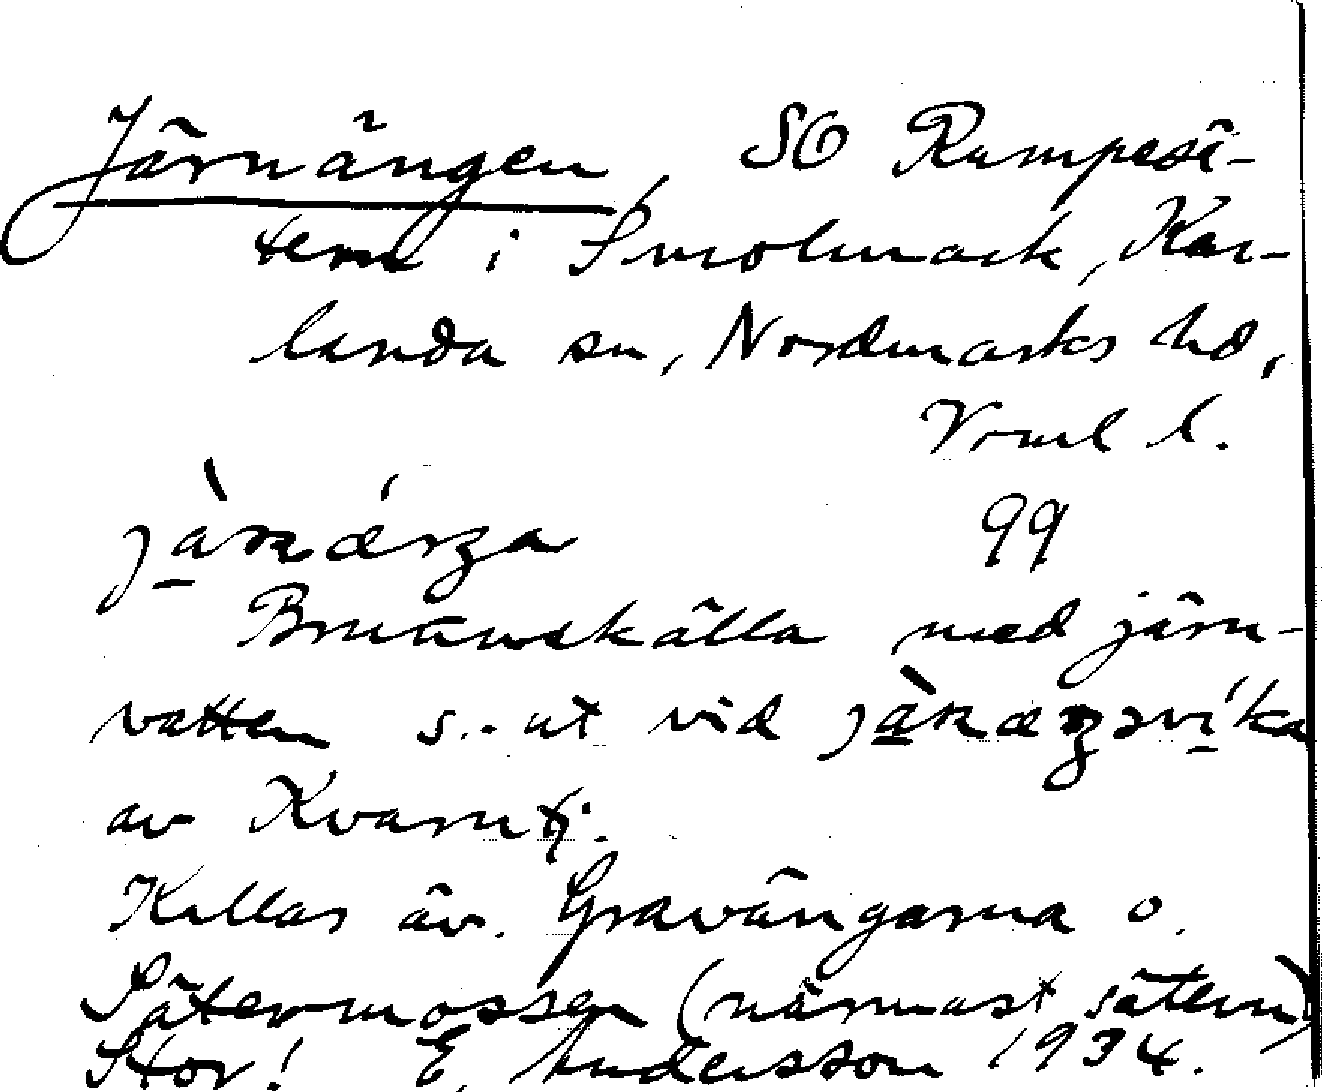 Järnängen, SO Rumpesä-
tern i Smolmark, Kar-
landa sn, Nordmarks hd,
Vrml l.
jà̱rnǽŋa 99
Brunnskälla med järn-
vatten s. ut vid
av Kvarntj.
Kallas äv. Gravängarna o.
Sätermossen (närmast sätern)
Stor! E. Andersson 1934.